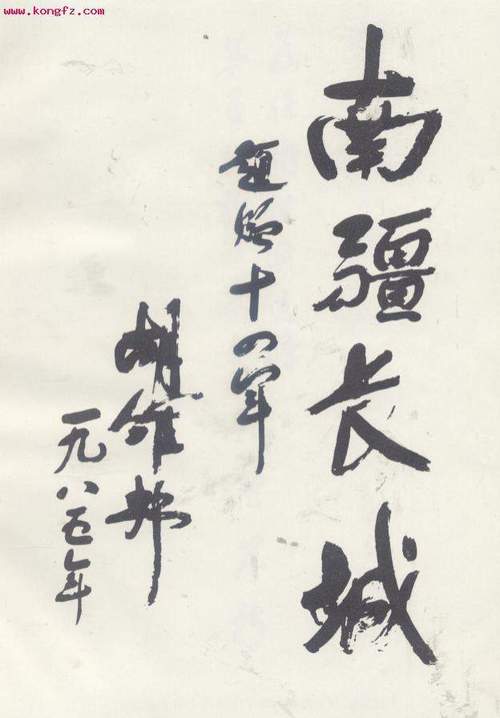 www.kongfz.com
南疆长城
题赠十四军
胡绩邦
一九八五年